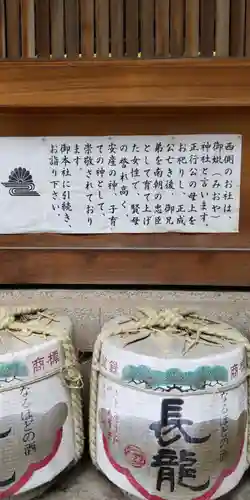 西側のお社は、
御蚘（みおや）
神社と言います。
正行公の母上を
お祀りし、正成
公亡き後、御兄
弟を南朝の忠臣
として育て上げ
た女性で、賢母
の誉れ高く、
安産の神、子育
ての神として、
崇敬されており
ます。
御本社に引続き、
お詣り下さい。
商標
ならほどの酒
長龍
登録
商標
ならほどの酒